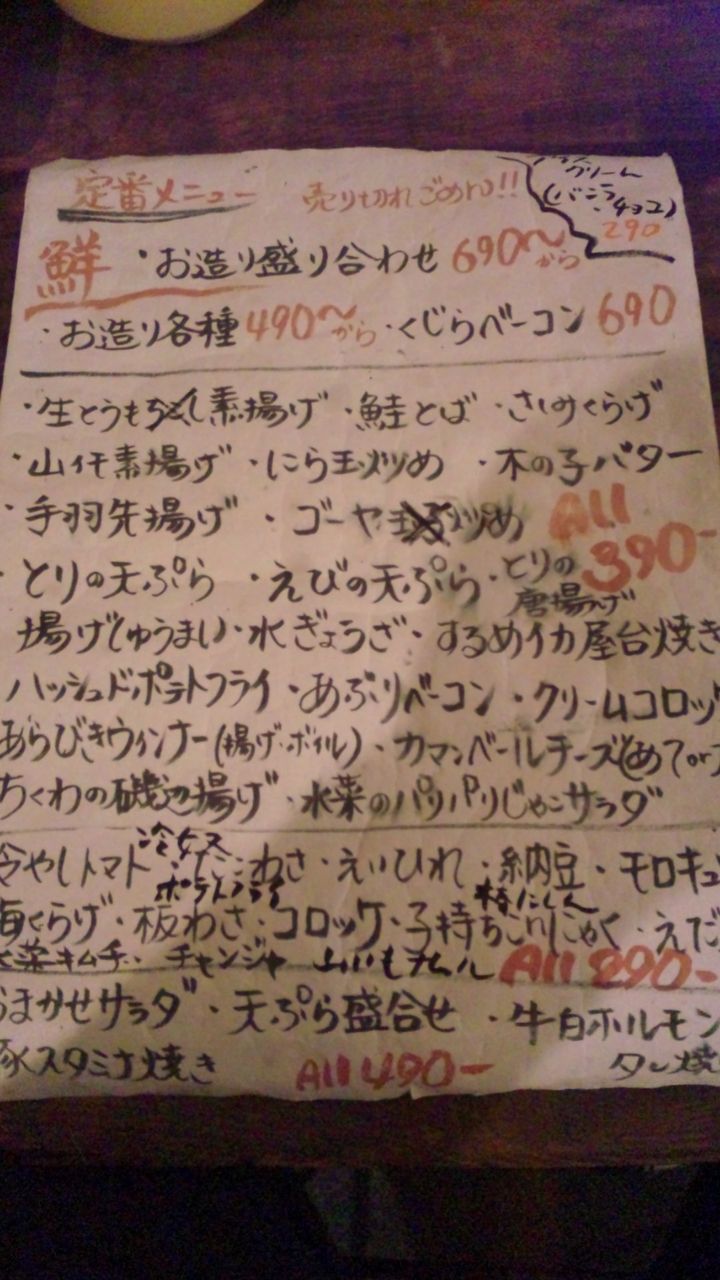 定番メニュー 売り切れごめん!!
クリーム
(バニラ
・チョコ)
290
鮮 ・お造り盛り合わせ 690〜から
・お造り各種 490〜から ・くじらベーコン 690
・生とうもろこし素揚げ ・鮭とば ・さしみくらげ
・山イモ素揚げ ・にら玉炒め ・木の子バター
・手羽先揚げ ・ゴーヤ炒め All
390-
・とりの天ぷら ・えびの天ぷら ・とりの
唐揚げ
揚げしゅうまい ・水ぎょうざ ・するめイカ屋台焼き
ハッシュドポテトフライ ・あぶりベーコン ・クリームコロッ
あらびきウィンナー(揚げ・ボイル) ・カマンベールチーズ
ちくわの磯辺揚げ ・水菜のパリパリじゃこサラダ
冷奴
冷やしトマト ・たこわさ ・えいひれ ・納豆 ・モロキュ
ポテトフライ
くらげ ・板わさ ・コロッケ ・子持ちこんにゃく ・えだ
菜キムチ ・チャンジャ All 290-
まかせサラダ ・天ぷら盛合せ ・牛白ホルモン
豚スタミナ焼き All 490- タン焼